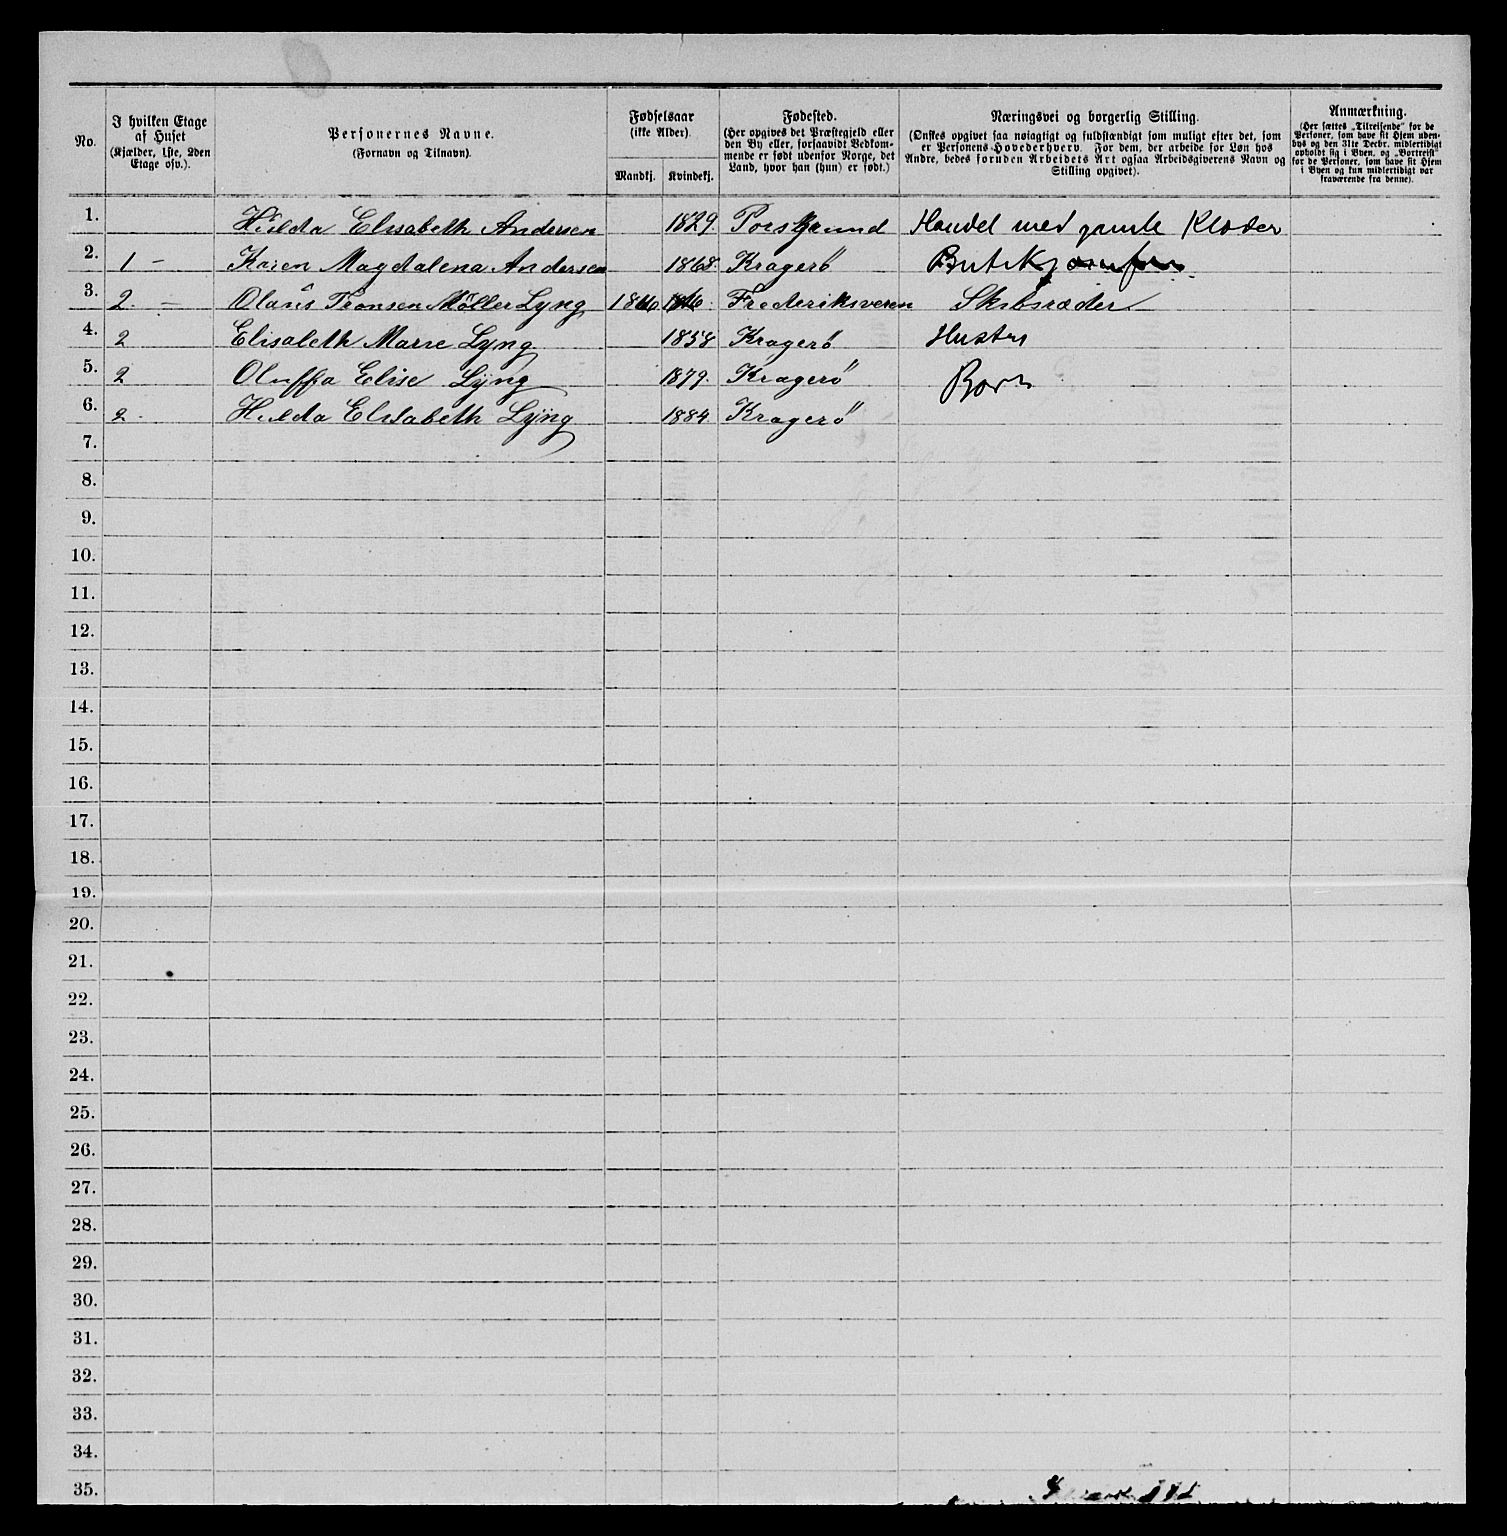 No.
I hvilken Etage
af Huset
(Kjælder, 1ste, 2den
Etage osv.).
Personernes Navne.
(Fornavn og Tilnavn).
Fødselsaar
(ikke Alder).
Mandkj. Kvindekj.
Fødested.
(Her opgives det Præstegjeld eller
den By eller, forsaavidt Vedkom-
mende er født udenfor Norge, det
Land, hvor han (hun) er født.)
Næringsvei og borgerlig Stilling.
(Ønskes opgivet saa nøiagtigt og fuldstændigt som muligt efter det, som
er Personens Hovederhverv. For dem, der arbeide for Løn hos
Andre, bedes foruden Arbeidets Art ogsaa Arbeidsgiverens Navn og
Stilling opgivet).
Anmærkning.
(Her sættes „Tilreisende" for de
Personer, som have sit Hjem uden-
bys og den 31te Decbr. midlertidigt
opholdt sig i Byen, og „Bortreist"
for de Personer, som have sit Hjem
i Byen og kun midlertidigt var
fraværende fra denne).
1. Hilda Elisabeth Andersen 1829. Porsgrund Handel med gamle Klæder
2. 1 – Karen Magdalena Andersen 1868. Kragerö
3. 2. – Olaus Tronsen Möller Lyng 1846 1846. Frederiksveren Skibsræder
4. 2 Elisabeth Marie Lyng 1858 Kragerö Hustru
5. 2 Oluffa Elise Lÿng 1879. Kragerö Børn
6. 2. Hilda Elisabeth Lÿng 1884. Kragerö
7.
8.
9.
10.
11.
12.
13.
14.
15.
16.
17.
18.
19.
20.
21.
22.
23.
24.
25.
26.
27.
28.
29.
30.
31.
32.
33.
34.
35.